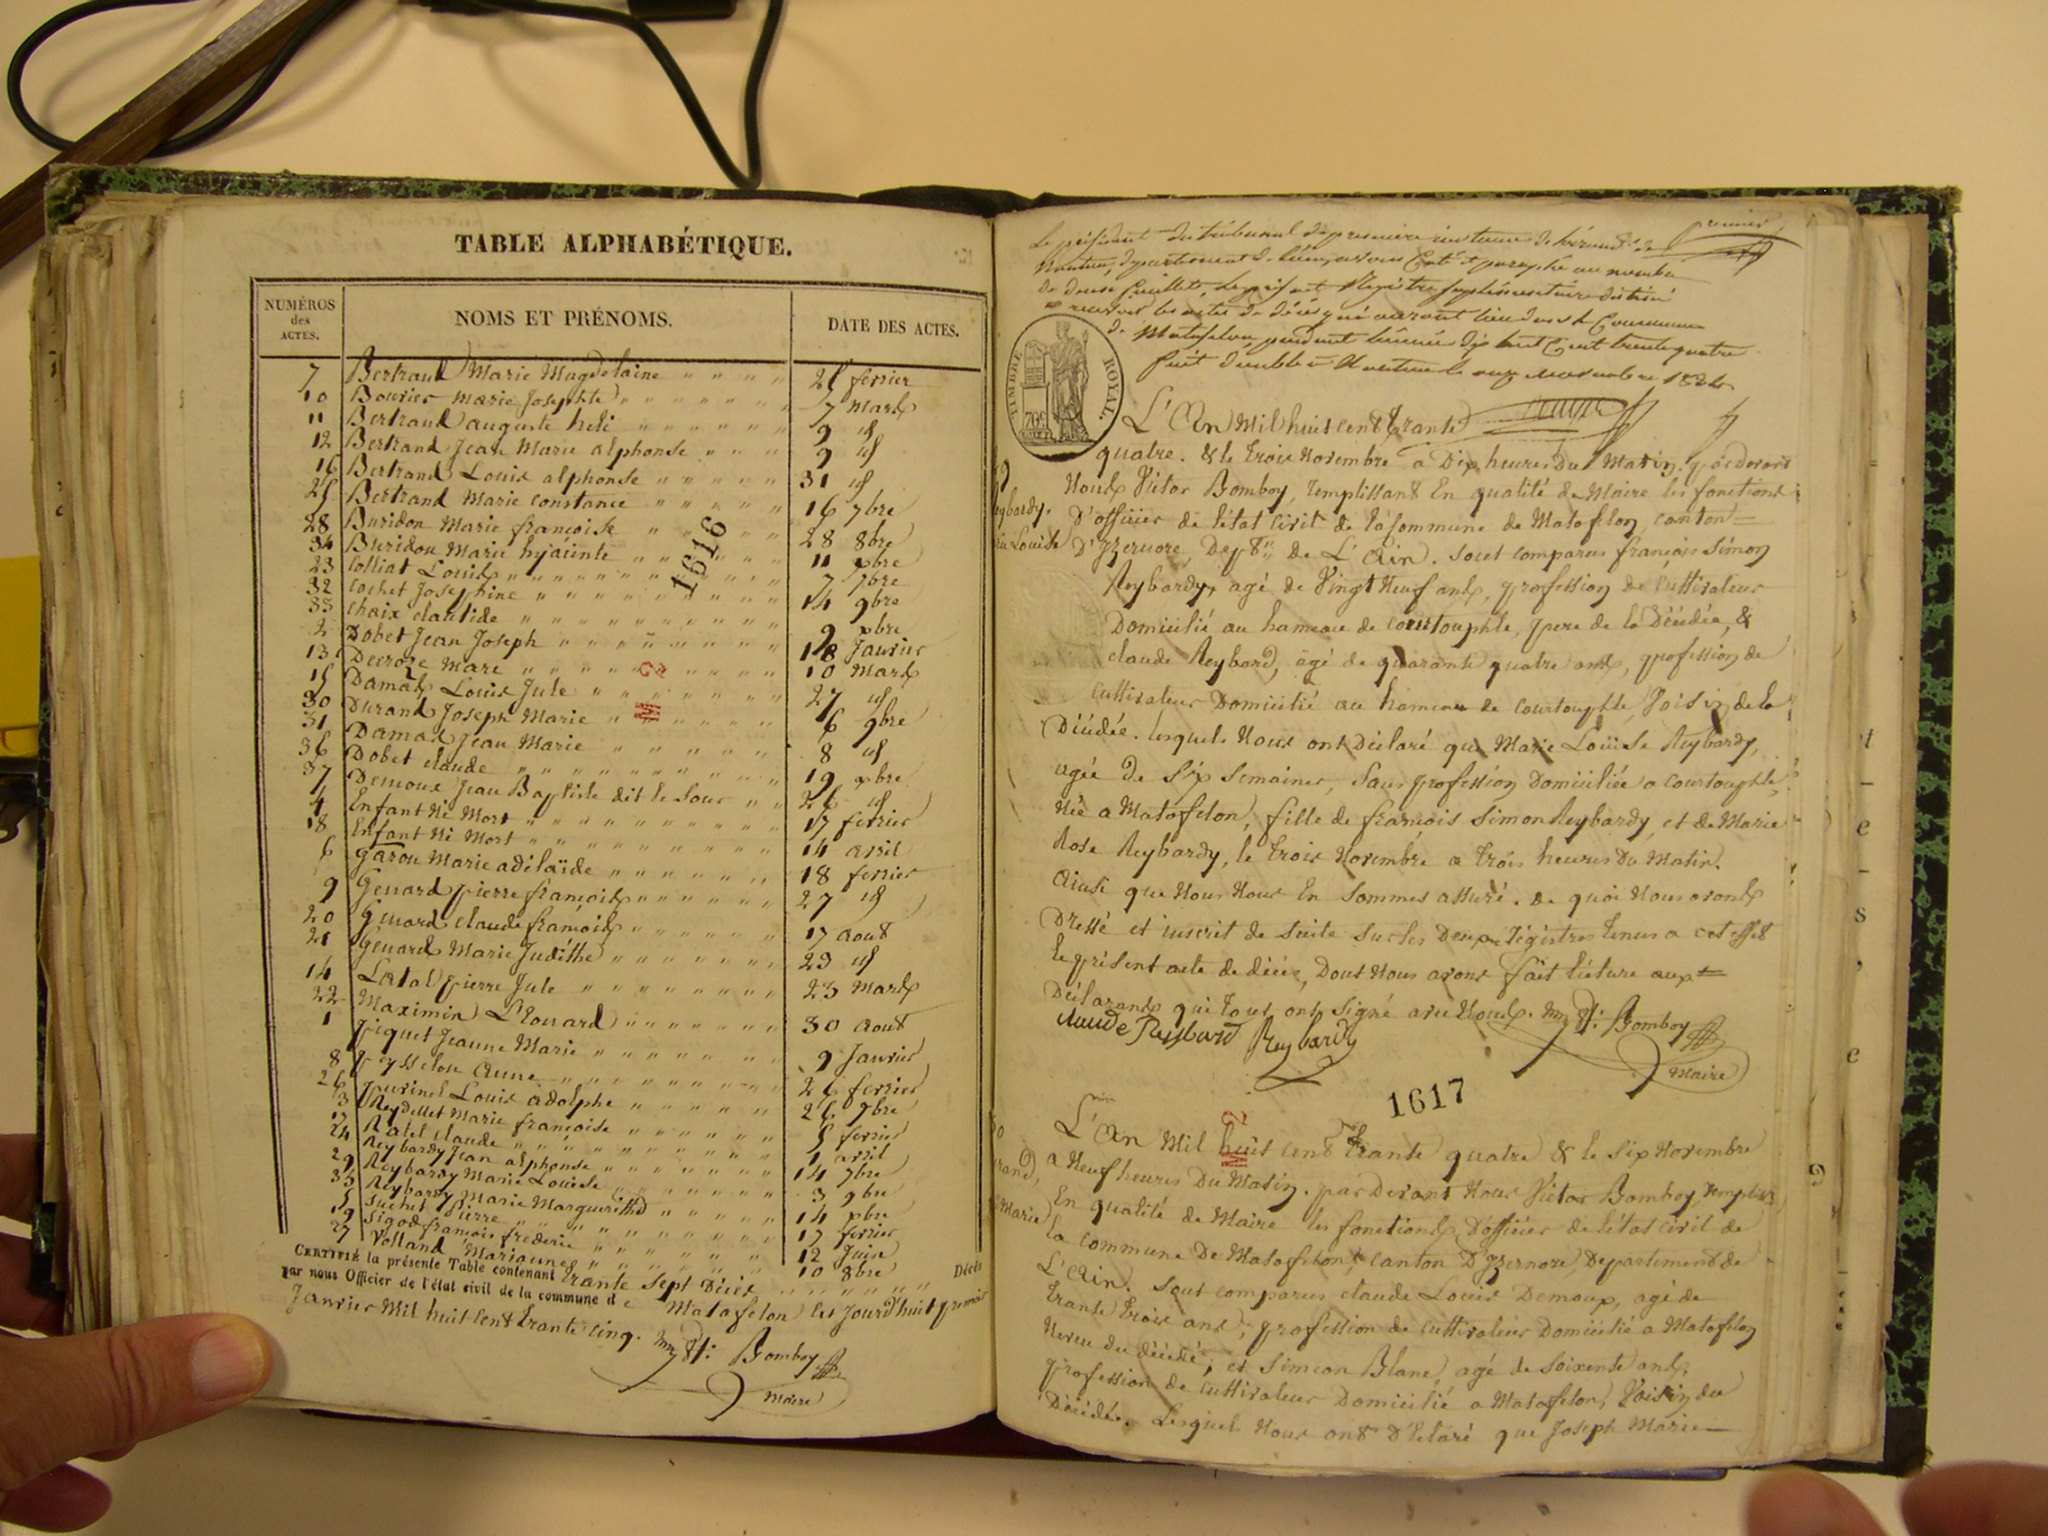 TABLE ALPHABÉTIQUE.
NUMÉROS des ACTES.
NOMS ET PRÉNOMS.
DATE DES ACTES.
7 Bertrand Marie Magdelaine " " " " février
10 Bouvier Marie Josephte " " " " 7 Mars
11 Bertrand auguste heli " " " " 9 id
12 Bertrand Jean Marie alphonse " " " 9 id
16 Bertrand Louis alphonse " " " " 31 id
25 Bertrand Marie constance " " " " 16 7bre
28 Buridon Marie françoise " " " 28 8bre
34 Buridon Marie hyacinte " " " " 11 xbre
23 Colliat Louis " " " " 7 7bre
32 Cochet Josephine " " " " 14 9bre
33 Chaix clautide " " " " 9 xbre
2 Dobet Jean Joseph " " " " 18 Janvier
13 Decroze Marc " " " " 10 Mars
15 Damas Louis Jule " " " " 27 id
30 Durand Joseph Marie " " " " 6 9bre
31 Damas Jean Marie " " " " 8 id
36 Dobet claude " " " " 19 xbre
37 Demoux Jean Baptiste dit le Sour " " 26 id
4 Enfant Né Mort " " " " 17 février
18 Enfant Né Mort " " " " 14 avril
6 Garou Marie adélaïde " " " " 18 février
9 Genard pierre françois " " " " 27 id
20 Genard claude françois " " " " 17 aout
21 Génard Marie Judithe " " " " 23 id
14 Latal pierre Jule " " " " 23 Mars
22 Maximin L'Eonard " " " " 30 aout
1 piquet Jeanne Marie " " " " 9 Janvier
8 peysselon Anne " " " " 26 février
26 Louis adolphe " " " " 26 7bre
3 Reydellet Marie françoise " " " " 5 février
17 Ratel claude " " " " 1 avril
24 Reybardy Jean alphonse " " " " 14 7bre
29 Reybardy Marie Louise " " " " 3 9bre
35 Reybardy Marie Marguerithe " " " " 14 xbre
5 Suchet Pierre " " " " 17 février
19 Sigod françois frederic " " " " 12 Juin
27 Volland Marianne " " " " 10 8bre
1616
CERTIFIÉ la présente Table contenant trante sept Décès " " " " Décès
par nous Officier de l'état civil de la commune de Matafelon les Jourd'huit premier
Janvier Mil huit Cent trante cinq. Bomboy
Maire
premier
Le président du tribunal de première instance de l'arrond.t de
Nantua, département de l'ain, avons Coté et paraphé au nombre
de douze feuillets, le présent Registre supplémentaire destiné
a recevoir les actes de décès qui auront lieu dans la Commune
de Matafelon pendant l'année dix huit Cent trente quatre
fait double à Nantua le onze Novembre 1834
TIMBRE ROYAL.
L'An Mil huit cent trante
quatre. & le trois Novembre a Dix heures du Matin. par devant
Nous Victor Bomboy, remplissant En qualité de Maire les fonctions
D'officier de l'état civil de la Commune de Matafelon, canton
D'Izernore, Dept. de L'Ain. Sont comparus françois Simon
Reybardy, agé de Vingt Neuf ans, profession de Cultivateur
Domicilié au hameau de courtouphle, père de la Décédée, &
claude Reybard, âgé de quarante quatre ans, profession de
cultivateur Domicilié au hameau de courtouphle Voisin de la
Décédée. Lesquels Nous ont Déclaré que Marie Louise Reybardy,
agée de Six Semaines, Sans profession Domiciliée a Courtouphle,
Née a Matafelon, fille de françois Simon Reybardy, et de Marie
Rose Reybardy, le trois Novembre a trois heures du Matin.
Ainsi que Nous Nous En Sommes assuré. De quoi Nous avons
Dressé et inscrit de suite sur les Deux régistres tenus a cet effet
le présent acte de décès, Dont Nous avons fait lecture aux
Déclarants qui tous ont Signé avec Nous. Bomboy
Claude Reybard Reybardy
maire
1617
L'An Mil huit cent trante quatre & le Six Novembre
a Neuf heures Du Matin. par Devant Nous Victor Bomboy
En qualité de Maire les fonctions D'officier de l'état civil de
la commune De Matafelon, canton D'Izernore, Departement de
L'Ain. Sont comparus claude Louis Demoux, agé de
trante trois ans, profession de Cultivateur Domicilié a Matafelon
Neveu du décédé, et Simeon Blanc, agé de Soixente ans,
profession de Cultivateur Domicilié a Matafelon, Voisin du
Décédé. Lesquels Nous ont D'éclaré que Joseph Marie